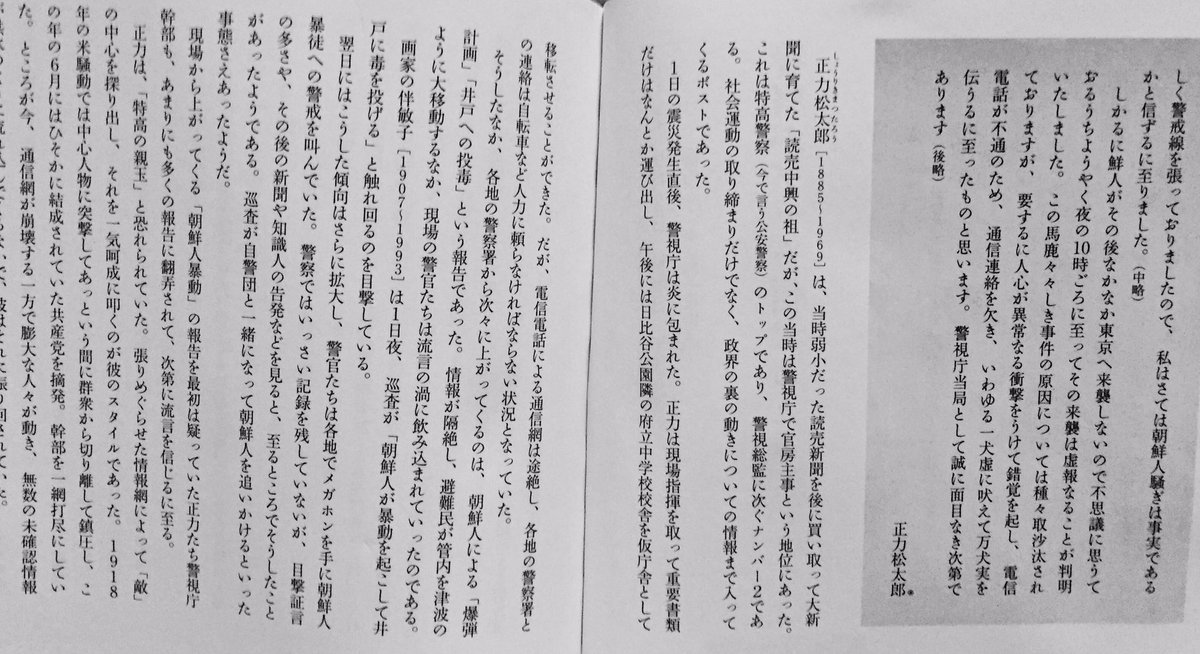 しく警戒線を張っておりましたので、私はさては朝鮮人騒ぎは事実である
かと信ずるに至りました。(中略)
しかるに鮮人がその後なかなか東京へ来襲しないので不思議に思うて
おるうちようやく夜の10時ごろに至ってその来襲は虚報なることが判明
いたしました。この馬鹿々々しき事件の原因については種々取沙汰され
ておりますが、要するに人心が異常なる衝撃をうけて錯覚を起し、電信
電話が不通のため、通信連絡を欠き、いわゆる一犬虚に吠えて万犬実を
伝うるに至ったものと思います。警視庁当局として誠に面目なき次第で
あります(後略)
正力松太郎
しょうりきまつたろう
正力松太郎[1885〜1969]は、当時弱小だった読売新聞を後に買い取って大新
聞に育てた「読売中興の祖」だが、この当時は警視庁で官房主事という地位にあった。
これは特高警察(今で言う公安警察)のトップであり、警視総監に次ぐナンバー2であ
る。社会運動の取り締まりだけでなく、政界の裏の動きについての情報まで入って
くるポストであった。
1日の震災発生直後、警視庁は炎に包まれた。正力は現場指揮を取って重要書類
だけはなんとか運び出し、午後には日比谷公園隣の府立中学校校舎を仮庁舎として
移転させることができた。だが、電信電話による通信網は途絶し、各地の警察署と
の連絡は自転車など人力に頼らなければならない状況となっていた。
そうしたなか、各地の警察署から次々に上がってくるのは、朝鮮人による「爆弾
計画」「井戸への投毒」という報告であった。情報が隔絶し、避難民が管内を津波の
ように大移動するなか、現場の警官たちは流言の渦に飲み込まれていったのである。
画家の伴敏子[1907〜1993]は1日夜、巡査が「朝鮮人が暴動を起こして井
戸に毒を投げる」と触れ回るのを目撃している。
翌日にはこうした傾向はさらに拡大し、警官たちは各地でメガホンを手に朝鮮人
暴徒への警戒を叫んでいた。警察ではいっさい記録を残していないが、目撃証言
の多さや、その後の新聞や知識人の告発などを見ると、至るところでそうしたこと
があったようである。巡査が自警団と一緒になって朝鮮人を追いかけるといった
事態さえあったようだ。
現場から上がってくる「朝鮮人暴動」の報告を最初は疑っていた正力たち警視庁
幹部も、あまりにも多くの報告に翻弄されて、次第に流言を信じるに至る。
正力は、「特高の親玉」と恐れられていた。張りめぐらせた情報網によって「敵」
の中心を探り出し、それを一気呵成に叩くのが彼のスタイルであった。1918
年の米騒動では中心人物に突撃してあっという間に群衆から切り離して鎮圧し、こ
の年の6月にはひそかに結成されていた共産党を摘発。幹部を一網打尽にしてい
た。ところが今、通信網が崩壊する一方で膨大な人々が動き、無数の未確認情報